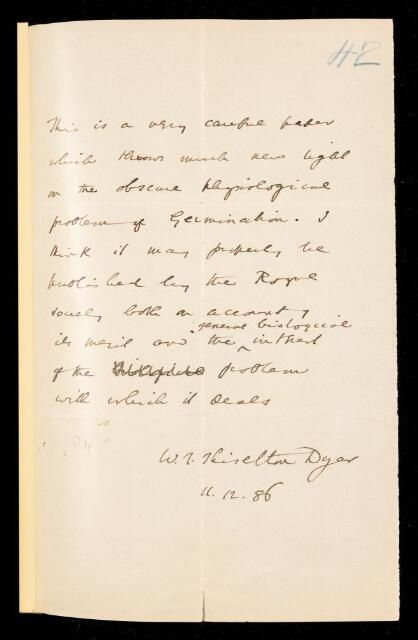 42
This is a very careful paper
which throws much new light
on the obscure physiological
problem of Germination. I
think it may properly be
published by the Royal
Society both on account of
general biological
its merit and the interest
of the problem
with which it deals
W. T. Thiselton Dyer
11. 12. 86